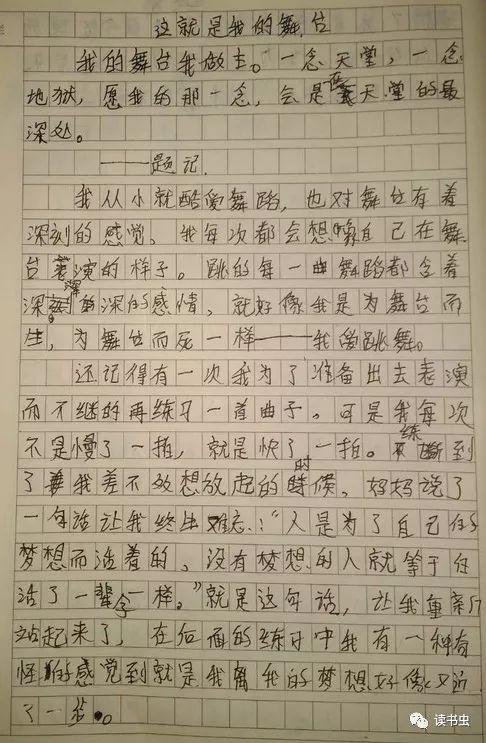 这就是我的舞台
我的舞台我做主。一念天堂，一念
地狱，愿我的那一念，会是在天堂的最
深处。
——题记.
我从小就酷爱舞蹈，也对舞台有着
深刻的感觉。我每次都会想像自己在舞
台表演的样子。跳的每一曲舞蹈都含着
深深的感情，就好像我是为舞台而
生，为舞台而死一样——我爱跳舞。
还记得有一次我为了准备出去表演
而不继的再练习一首曲子。可是我每次
不是慢了一拍，就是快了一拍。练到
了我差不多想放起的时候，妈妈说了
一句话让我终生难忘："人是为了自己的
梦想而活着的，没有梦想的人就等于白
活了一辈子一样。"就是这句话，让我重新
站起来了，在后面的练习中我有一种奇
怪的感觉到就是我离我的梦想好像又近
了一步。
读书虫